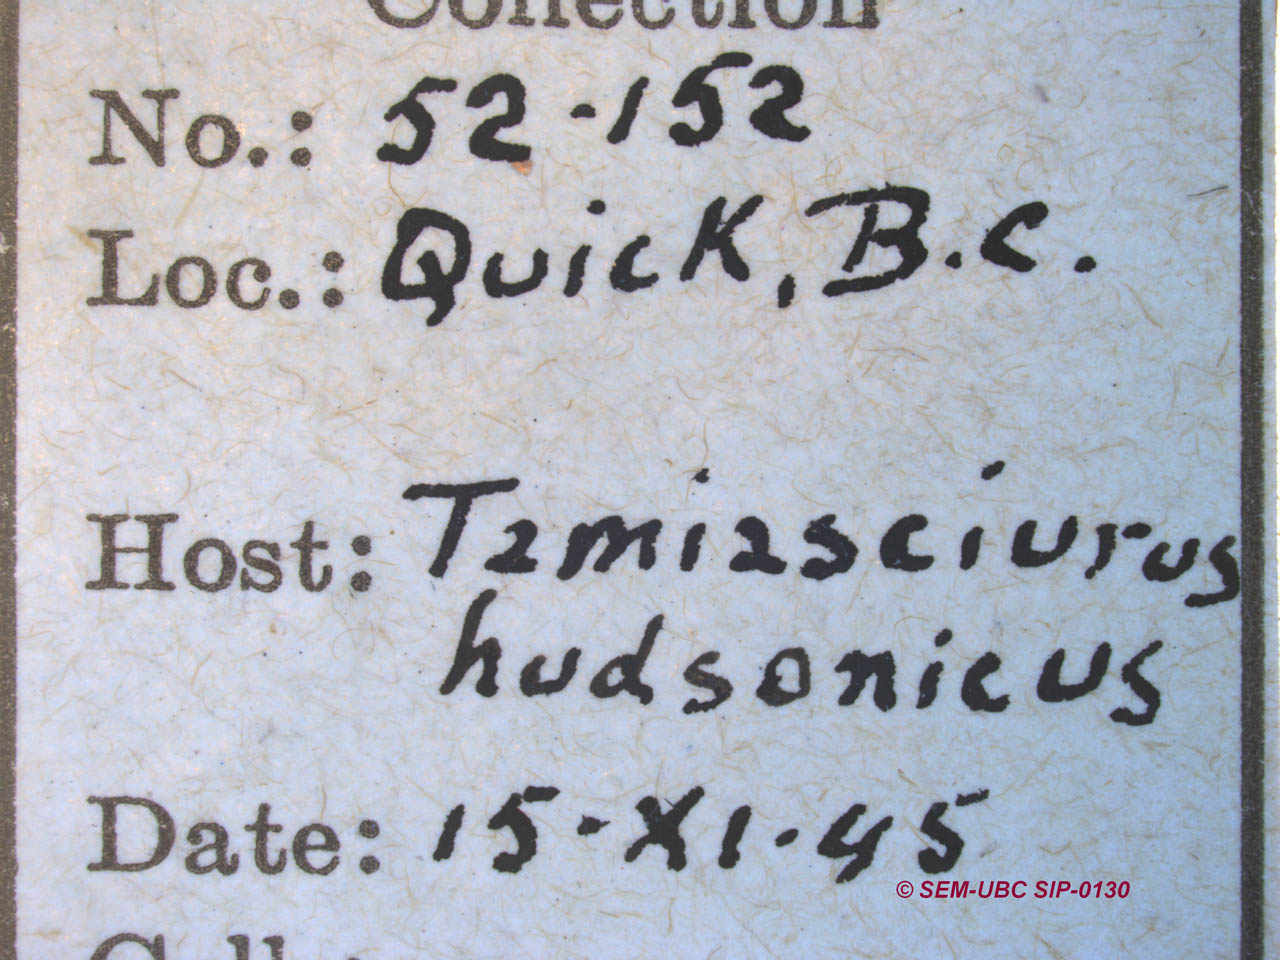 Collection
No.: 52-152
Loc.: Quick, B.C.
Host: Tamiasciurus
hudsonicus
Date: 15-XI-45
© SEM-UBC SIP-0130